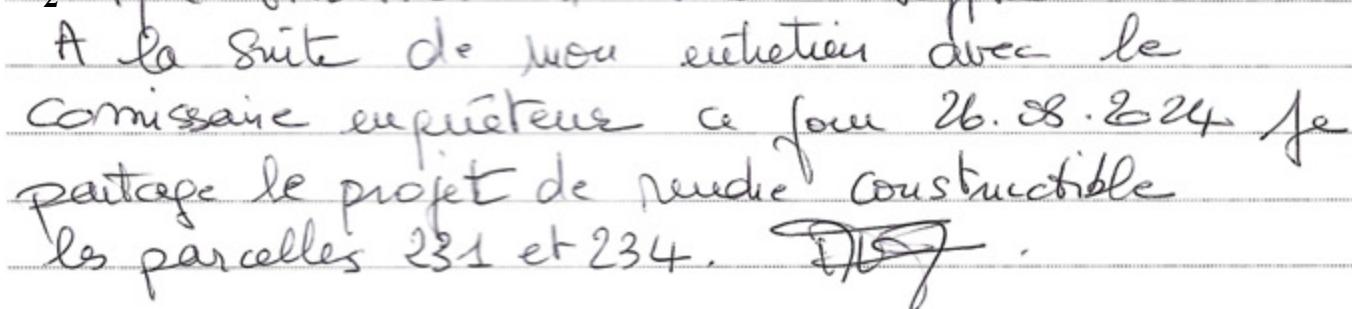 A la suite de mon entretien avec le
comissaire enquêteur ce jour 26.08.2024 je
partage le projet de rendre constructible
les parcelles 231 et 234.